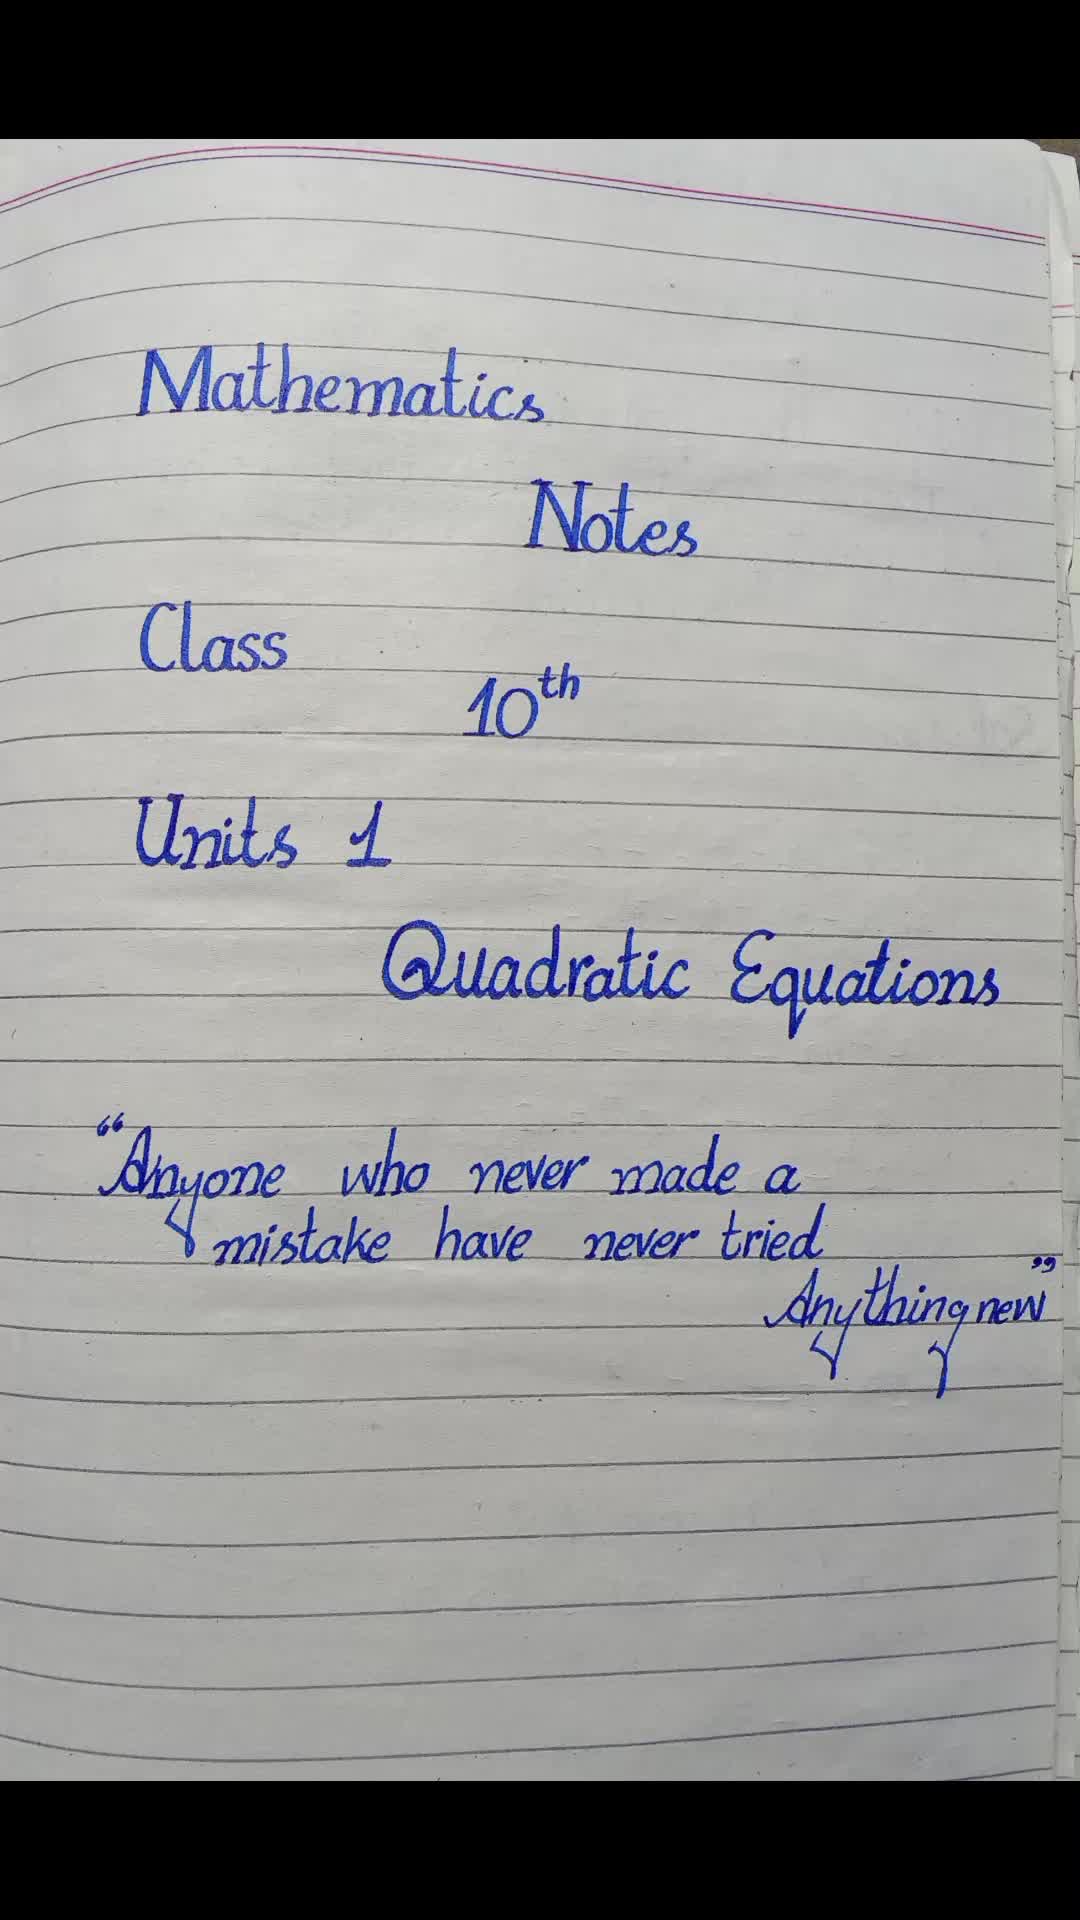 Mathematics
Notes
Class
10th
Units 1
Quadratic Equations
“Anyone who never made a
mistake have never tried
Anything new”